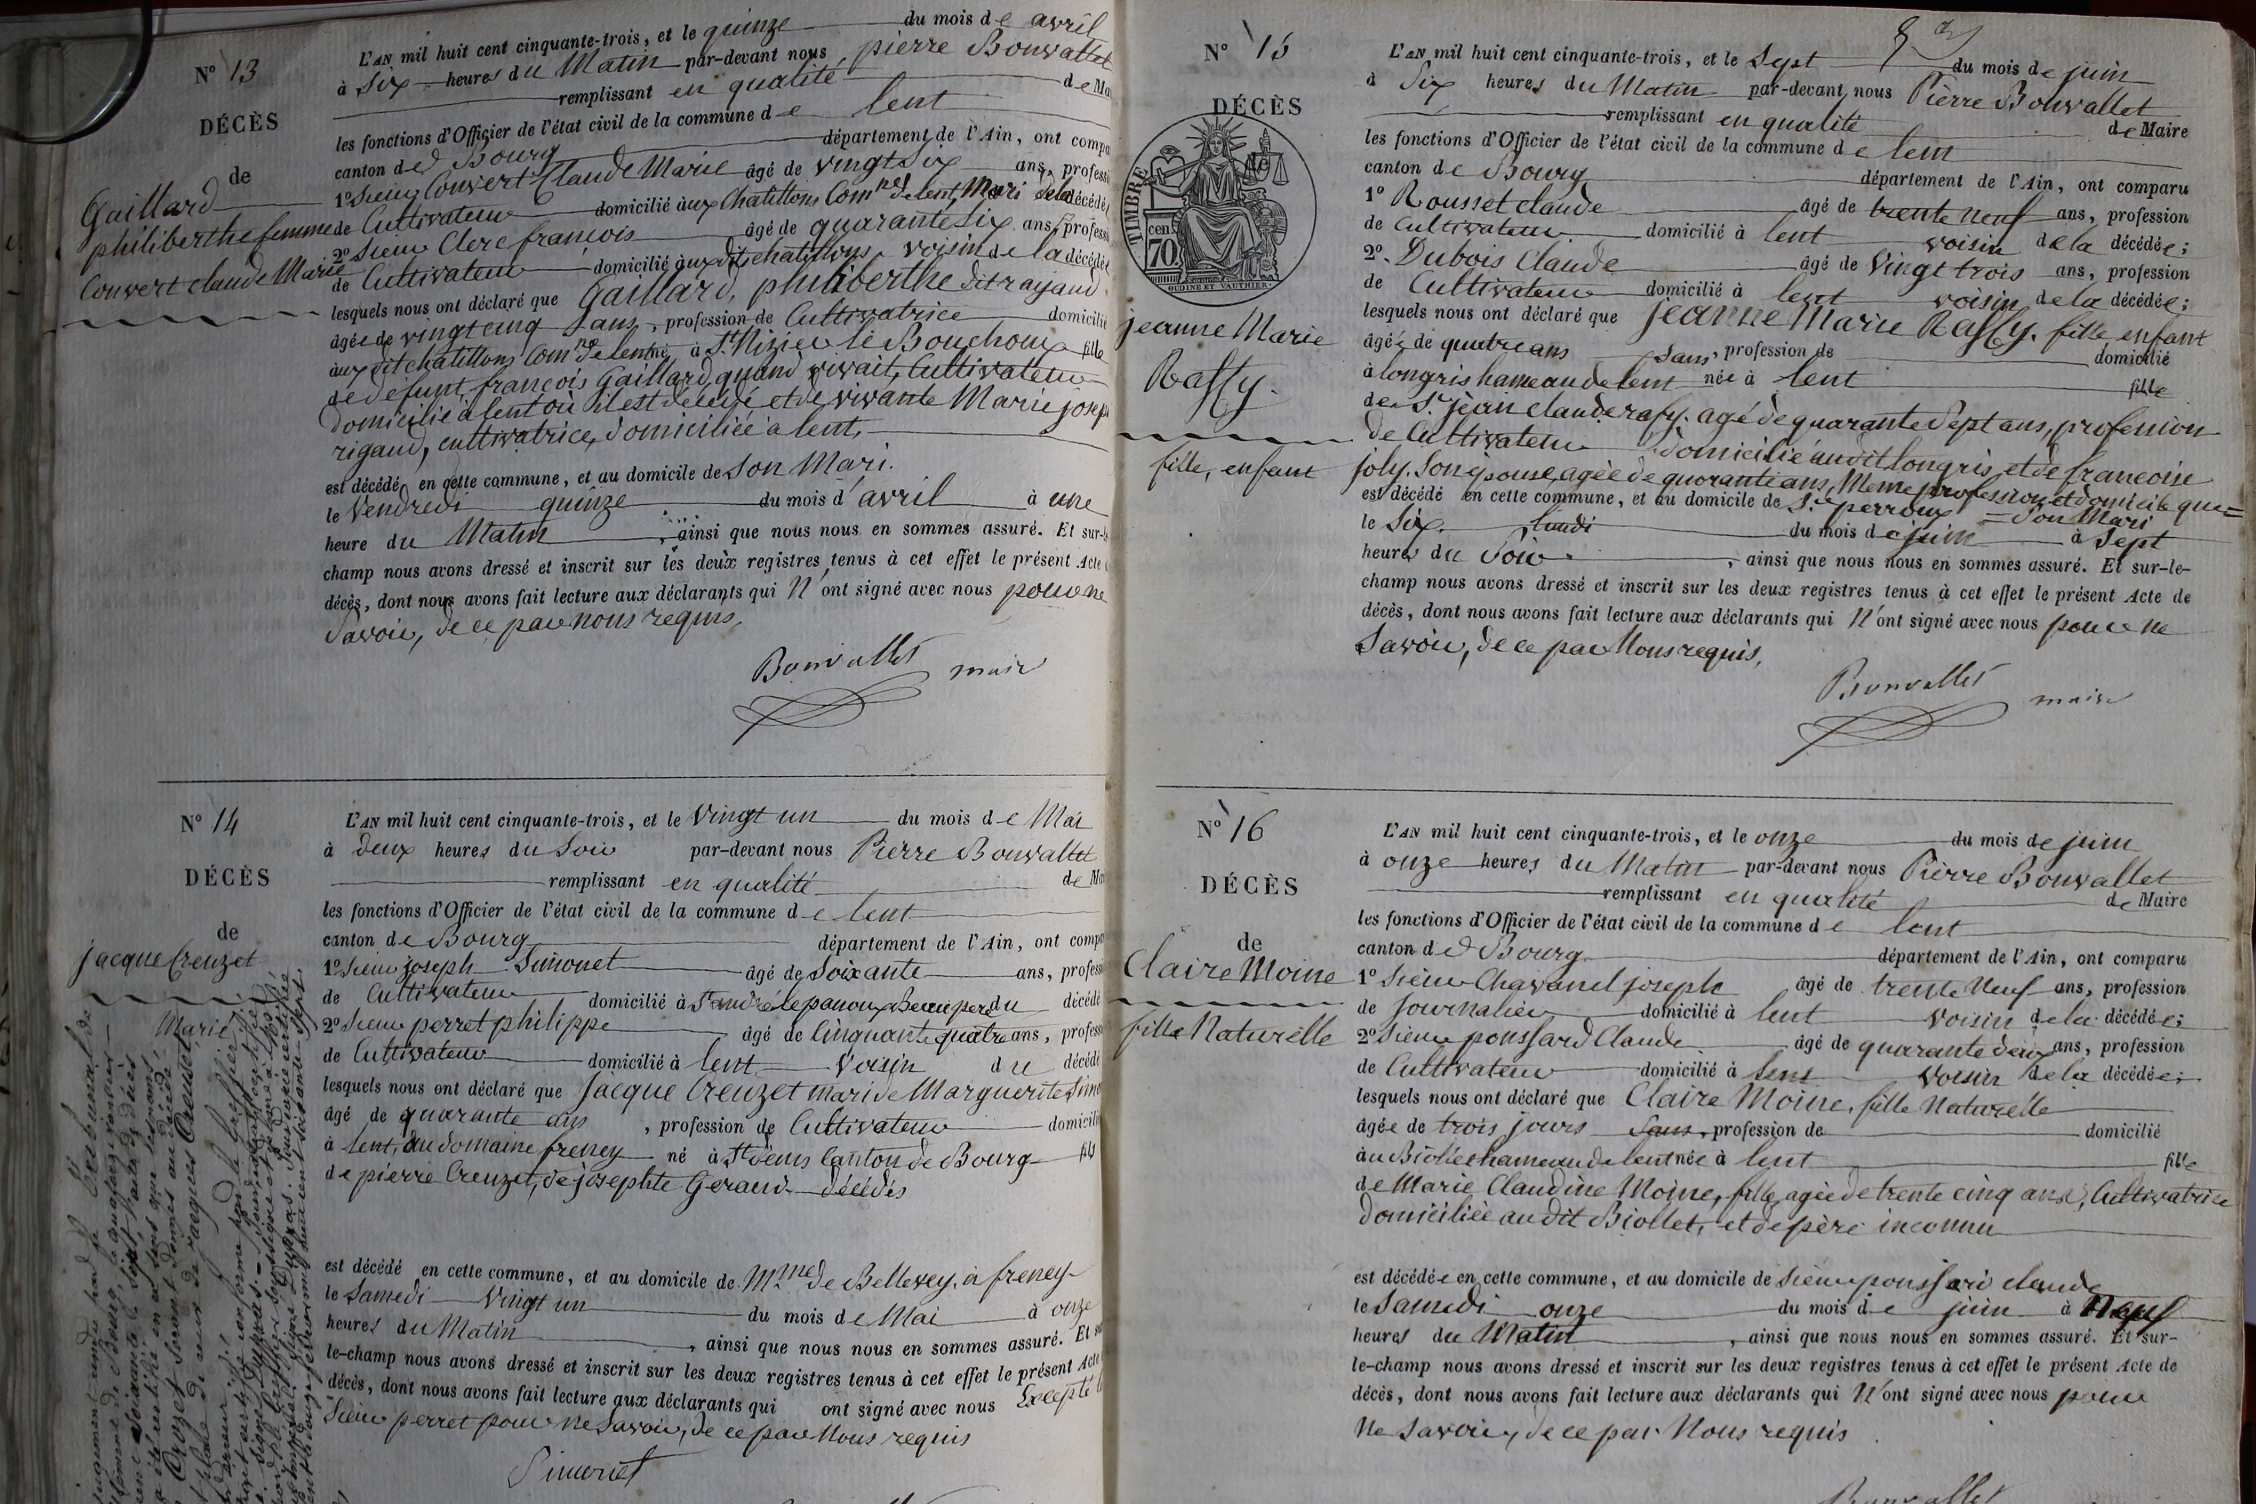 N° 13
DÉCÈS
de
Gaillard
philiberthe femme
Convert claude Marie
L'AN mil huit cent cinquante-trois, et le quinze du mois de avril
à six heures du Matin par-devant nous pierre Bonvallet
remplissant en qualité de
les fonctions d'Officier de l'état civil de la commune de lent
canton de Bourg département de l'Ain, ont
1° Sieur Convert Claude Marie âgé de vingt six ans,
de Cultivateur domicilié aux Chatillons Com.ne de lent, Mari de la
2° Sieur Clerc françois âgé de quarante six ans,
de Cultivateur domicilié aux dits chatillons voisin de la
lesquels nous ont déclaré que Gaillard, philiberthe dit rajaud
âgée de vingt cinq ans, profession de Cultivatrice
aux dit chatillons Com.ne de lent née à St Nizier le Bouchoux fille
de defunt françois Gaillard, quand vivait, Cultivateur
domicilié à lent où il est décédé et de vivante Marie
rigaud, cultivatrice, domiciliée a lent,
est décédé en cette commune, et au domicile de son Mari.
le Vendredi quinze du mois d'avril à une
heure du Matin, ainsi que nous nous en sommes assuré. Et
champ nous avons dressé et inscrit sur les deux registres tenus à cet effet le présent Acte
décès, dont nous avons fait lecture aux déclarants qui N'ont signé avec nous pour ne
Savoir, de ce par nous requis,
Bonvallet maire
N° 14
DÉCÈS
de
jacque Creuzet
L'AN mil huit cent cinquante-trois, et le Vingt un du mois de Mai
à deux heures du Soir par-devant nous Pierre Bonvallet
remplissant en qualité de
les fonctions d'Officier de l'état civil de la commune de lent
canton de Bourg département de l'Ain, ont
1° Sieur joseph Simonet âgé de Soixante ans,
de Cultivateur domicilié à St andré le panoux Beaupere du
2° Sieur perret philippe âgé de Cinquante quatre ans,
de Cultivateur domicilié à lent Voisin du
lesquels nous ont déclaré que Jacque Creuzet mari de Marguerite
âgé de quarante ans, profession de Cultivateur
à lent, au domaine freney né à St Denis Canton de Bourg fils
de pierre Creuzet, de josephte Geraud décédés
est décédé en cette commune, et au domicile de Mme de Bellevey, à freney
le Samedi Vingt un du mois de Mai à onze
heures du Matin, ainsi que nous nous en sommes assuré. Et
le-champ nous avons dressé et inscrit sur les deux registres tenus à cet effet le présent Acte
décès, dont nous avons fait lecture aux déclarants qui ont signé avec nous Excepté
Sieur perret pour ne Savoir, de ce par Nous requis
Simonet
N° 15
DÉCÈS
TIMBRE
cen.
70
OUDINÉ ET VAUTHIER.
jeanne Marie
Raffy.
fille, enfant
L'AN mil huit cent cinquante-trois, et le Sept du mois de juin
à Six heures du Matin par-devant nous Pierre Bonvallet
remplissant en qualité de Maire
les fonctions d'Officier de l'état civil de la commune de lent
canton de Bourg département de l'Ain, ont comparu
1° Rousset claude âgé de trente neuf ans, profession
de Cultivateur domicilié à lent voisin de la décédée;
2°. Dubois Claude âgé de Vingt trois ans, profession
de Cultivateur domicilié à lent voisin de la décédée;
lesquels nous ont déclaré que Jeanne Marie Raffy. fille, enfant
âgée de quatre ans Sans, profession de domicilié
à longris hameau de lent née à lent fille
de Sr jean claude rafy. agé de quarante Sept ans, profession
de Cultivateur domicilié audit longris, et de francoise
joly. Son épouse, agée de quarante ans, Meme profession et domicile que=
=Son Mari
est décédé en cette commune, et au domicile de Sr perroux
le Six. lundi du mois de juin à Sept
heures du Soir, ainsi que nous nous en sommes assuré. Et sur-le-
champ nous avons dressé et inscrit sur les deux registres tenus à cet effet le présent Acte de
décès, dont nous avons fait lecture aux déclarants qui N'ont signé avec nous pour ne
Savoir, de ce par Nous requis,
Bonvallet maire
N° 16
DÉCÈS
de
Claire Moine
fille Naturelle
L'AN mil huit cent cinquante-trois, et le onze du mois de juin
à onze heures du Matin par-devant nous Pierre Bonvallet
remplissant en qualité de Maire
les fonctions d'Officier de l'état civil de la commune de lent
canton de Bourg département de l'Ain, ont comparu
1° Sieur Chavanel joseph âgé de trente Neuf ans, profession
de Journalier domicilié à lent voisin de la décédée;
2° Sieur poussard Claude âgé de quarante deux ans, profession
de Cultivateur domicilié à lent Voisin de la décédée;
lesquels nous ont déclaré que Claire Moine, fille Naturelle
âgée de trois jours Sans, profession de domicilié
au Biollet hameau de lent née à lent fille
de Marie Claudine Moine, fille, agée de trente cinq ans, Cultivatrice
domiciliée au dit Biollet, et de père inconnu
est décédée en cette commune, et au domicile de Sieur poussard claude
le Samedi onze du mois de juin à Neuf
heures du Matin, ainsi que nous nous en sommes assuré. Et sur-
le-champ nous avons dressé et inscrit sur les deux registres tenus à cet effet le présent Acte de
décès, dont nous avons fait lecture aux déclarants qui N'ont signé avec nous pour
Ne Savoir, de ce par Nous requis
Bonvallet